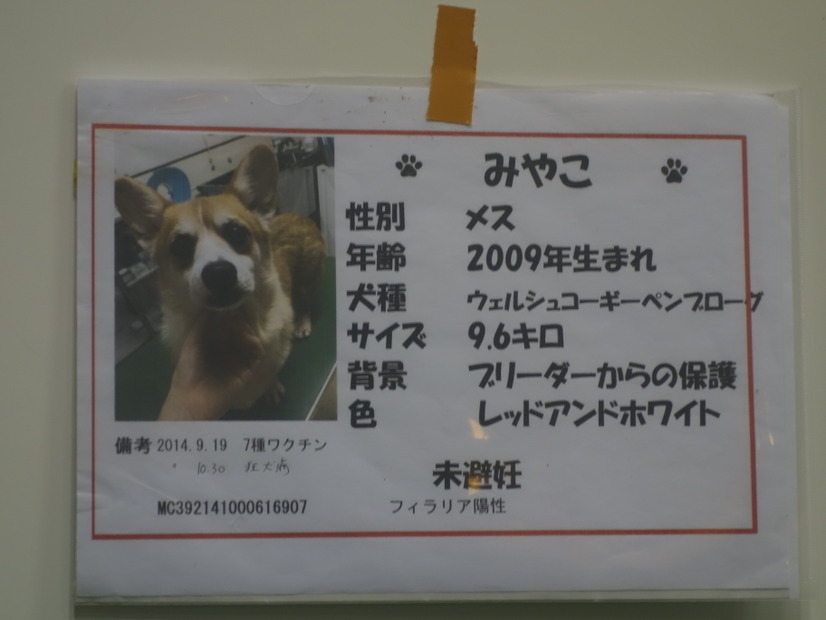 みやこ
性別 メス
年齢 2009年生まれ
犬種 ウェルシュコーギーペンブローグ
サイズ 9.6キロ
背景 ブリーダーからの保護
色 レッドアンドホワイト
備考 2014.9.19 7種ワクチン
10.30 狂犬病
未避妊
MC392141000616907 フィラリア陽性